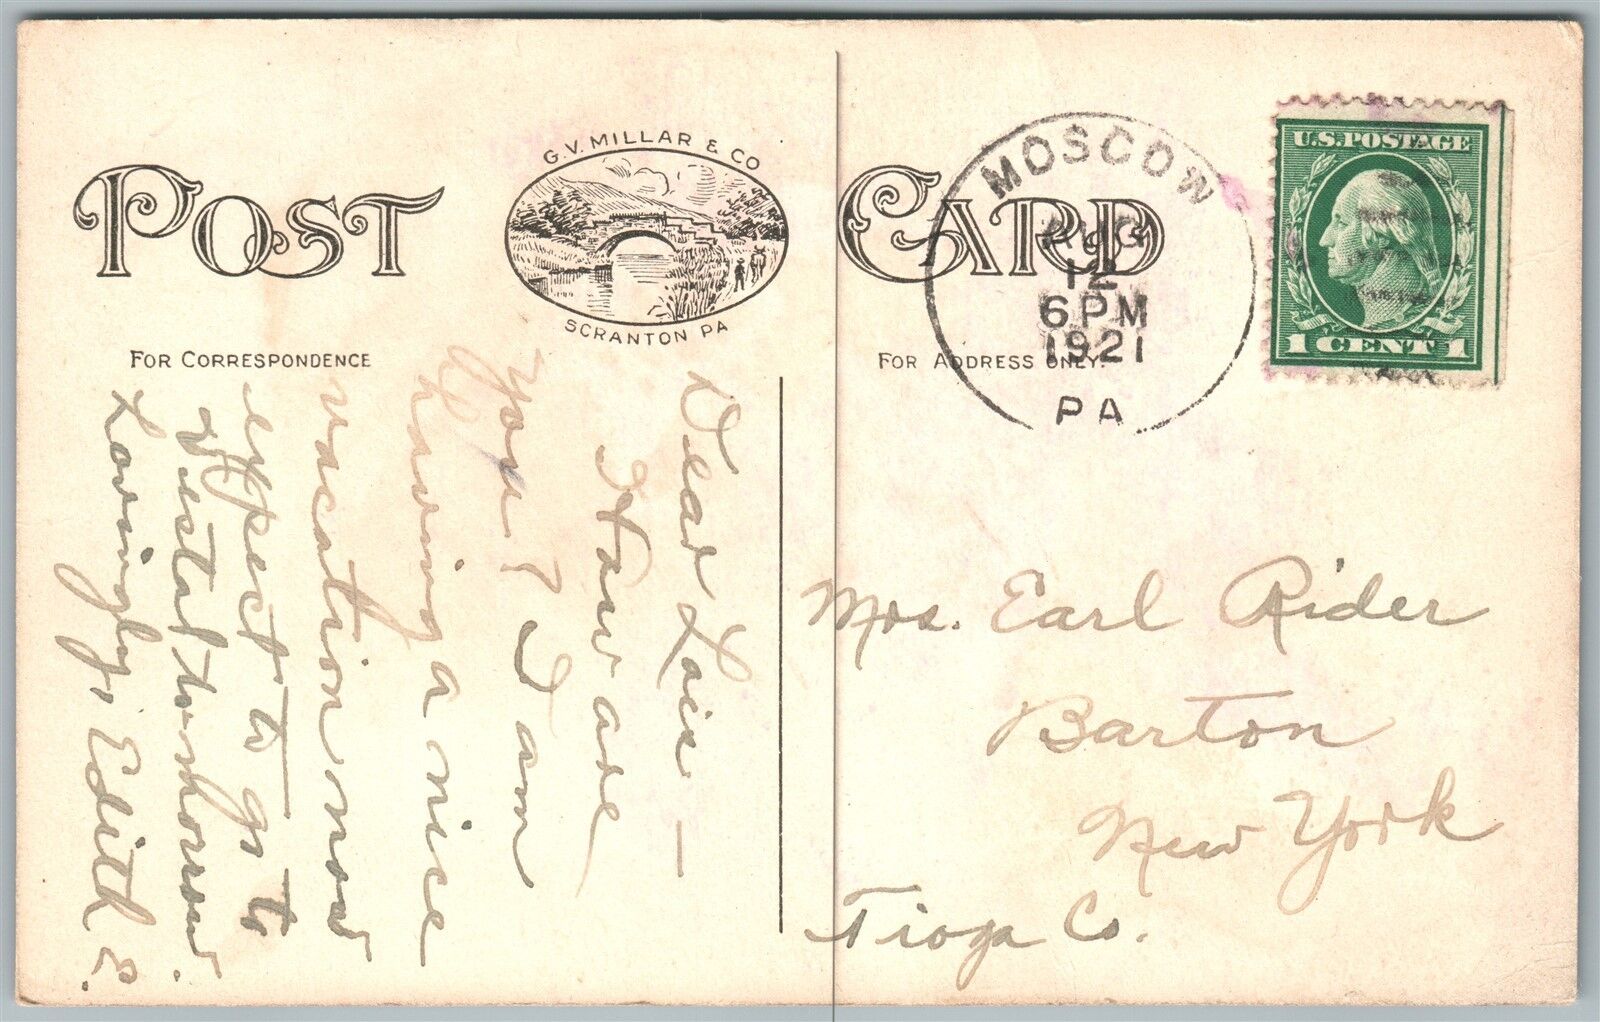 POST CARD
G.V. MILLAR & CO
SCRANTON PA
FOR CORRESPONDENCE
FOR ADDRESS ONLY.
MOSCOW
AUG
12
6PM
1921
PA
U.S. POSTAGE
1 CENT 1
Dear Lois –
How are
you? I am
having a nice
vacation now
expect to go to
Vestal to-morrow.
Lovingly, Edith E.
Mrs. Earl Rider
Barton
New York
Tioga Co.